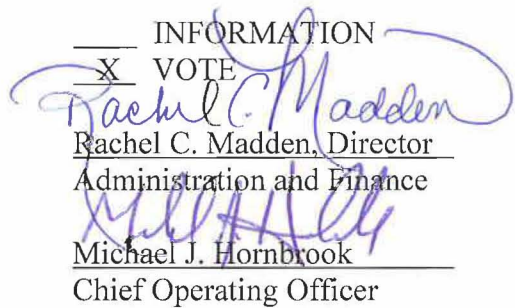 ____ INFORMATION
X VOTE
Rachel C. Madden
Rachel C. Madden, Director
Administration and Finance
Michael J. Hornbrook
Chief Operating Officer